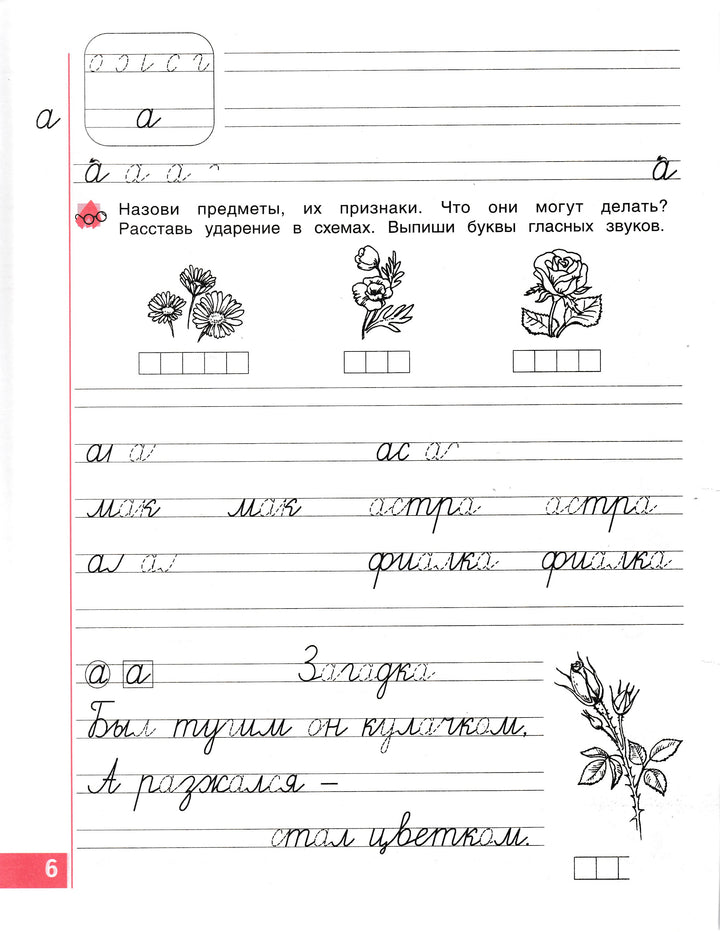 а а
а а а а
Назови предметы, их признаки. Что они могут делать?
Расставь ударение в схемах. Выпиши буквы гласных звуков.
аı а ас ас
мак мак астра астра
а а фиалка фиалка
а а Загадка
Был тугим он кулачком,
А разжался –
стал цветком.
6